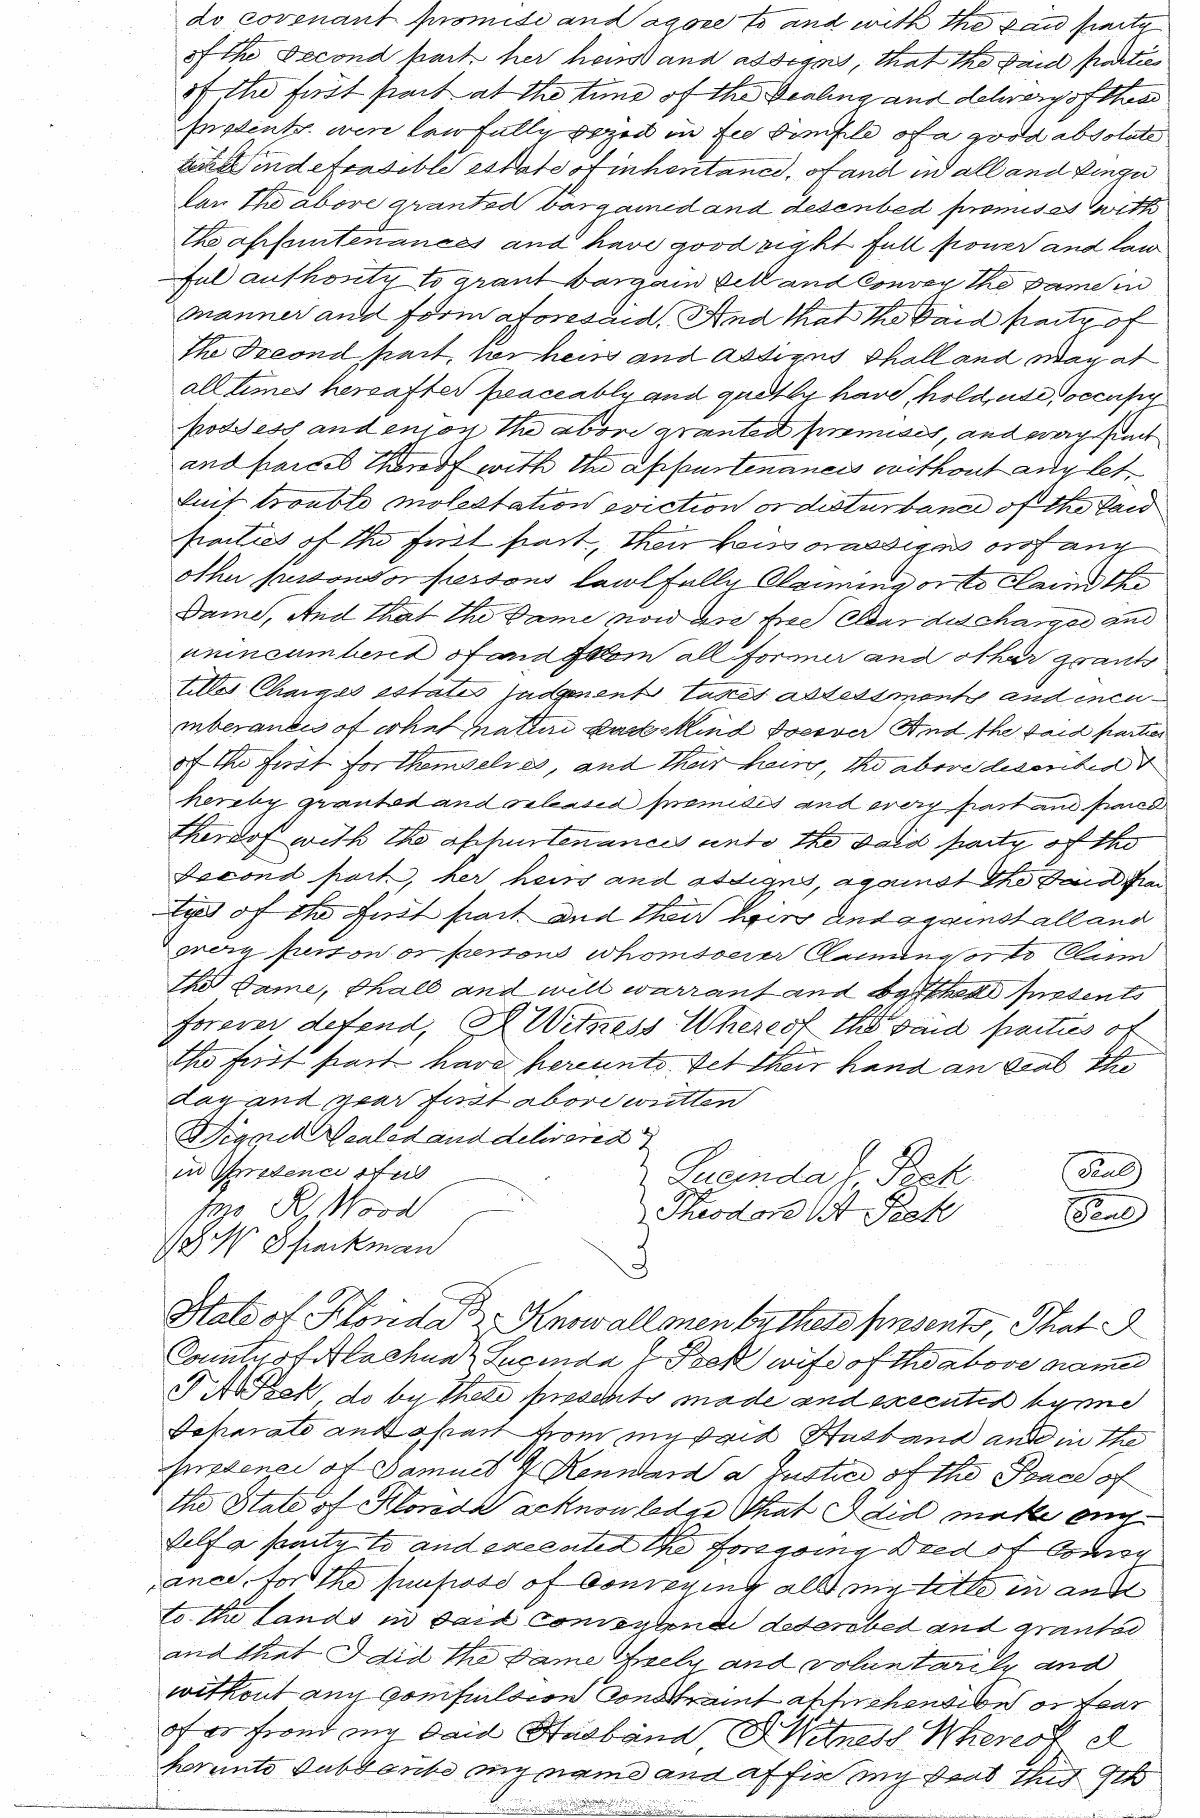 do covenant promise and agree to and with the said party
of the second part. her heirs and assigns, that the said parties
of the first part at the time of the sealing and delivery of these
presents. were lawfully seized in fee simple of a good absolute
and indefeasible estate of inheritance, of and in all and singu
lar the above granted bargained and described premises with
the appurtenances and have good right full power and law
ful authority to grant bargain sell and Convey the same in
manner and form aforesaid. And that the said party of
the second part, her heirs and assigns shall and may at
all times hereafter peaceably and quetly have, hold, use, occupy
possess and enjoy the above granted premises, and every part
and parcel thereof with the appurtenances without any let,
suit trouble molestation eviction or disturbance of the said
parties of the first part, their heirs or assigns or of any
other persons or persons lawlfully Claiming or to claim the
same, And that the same now are free Clear discharged and
unincumbered of and from all former and other grants
titles Charges estates judgments taxes assessments and incu-
mberances of what nature and Kind soever And the said parties
of the first for themselves, and their heirs, the above described &
hereby granted and released premises and every part and parcel
thereof with the appurtenances unto the said party of the
second part, her heirs and assigns, against the said par
tyes of the first part and their heirs and against all and
every person or persons whomsoever Claiming or to Claim
the same, shall and will warrant and by these presents
forever defend, In Witness Whereof the said parties of
the first part have hereunto set their hand an seal the
day and year first above written
Signed Sealed and delivered
in Presence of us
Lucinda J. Peek Seal
Jno R. Wood
Theodore A Peek Seal
S W Sparkman
State of Florida Know all men by these presents, That I
County of Alachua Lucinda J Peek wife of the above named
T A Peek, do by these presents made and executed by me
separate and apart from my said Husband and in the
presence of Samuel J Kennard a Justice of the Peace of
the State of Florida acknowledge that I did make my-
self a party to and executed the foregoing Deed of Convey
ance, for the purpose of Conveying all my title in and
to the lands in said conveyance described and granted
and that I did the same freely and voluntarily and
without any Compulsion Constraint apprehension or fear
of or from my said Husband, In Witness Whereof I
herunto subscribe my name and affix my seal this 9th